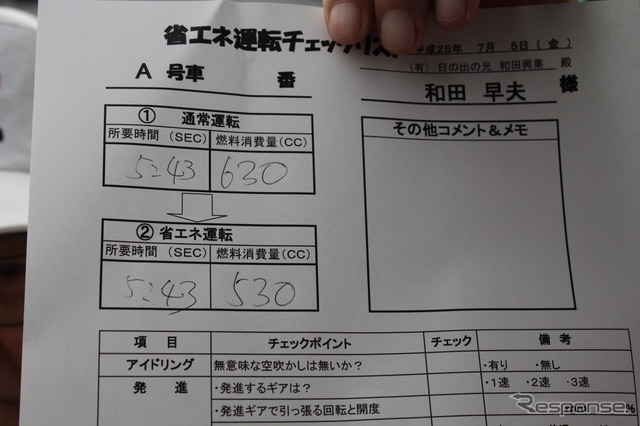 省エネ運転チェックリスト
平成25年 7月 5日(金)
(有)日の出の光 和田興業 殿
A 号車 番
和田 早夫 様
① 通常運転
所要時間(SEC) 燃料消費量(CC)
5:43 630
② 省エネ運転
所要時間(SEC) 燃料消費量(CC)
5:43 530
その他コメント&メモ
項 目 チェックポイント チェック 備 考
アイドリング 無意味な空吹かしは無いか? ・有り ・無し
発 進 ・発進するギアは? ・1速 ・2速 ・3速
・発進ギアで引っ張る回転と開度 rpm %
Response.